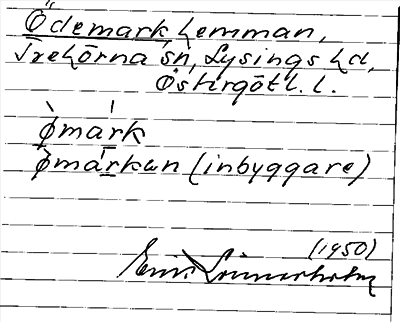 Ödemark hemman,
Trehörna sn, Lysings hd,
Östergötl. l.
ø̀márk
ø̀márkan (inbyggare)
(1950)